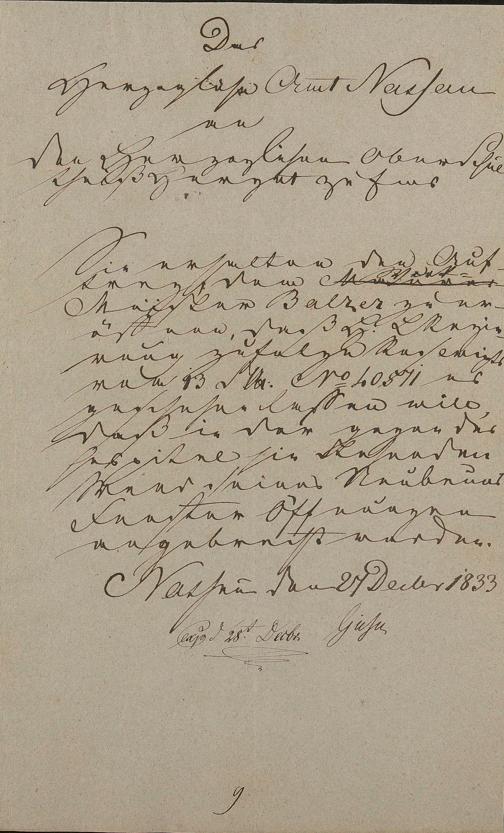 Das
Herzogliche Amt Nassau
an
den Herzoglichen Oberschul
theiß zu Ems
Sie erhalten den Auf-
trag dem
Meister Balzer zu er-
öffnen, daß H. L. Regie-
rung zufolge Rescripts
vom 13 d. M. No 40571 es
geschehen lassen will,
daß in der gegen das
Hospital hin stehenden
Wand seines Neubaues
Fenster Öffnungen
angebracht werden.
Nassau den 27 Decbr 1833
28t Decbr
9